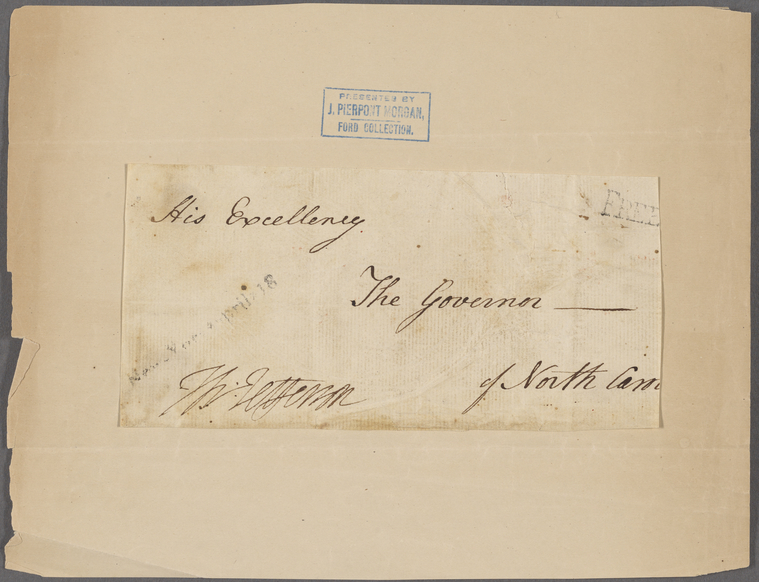 PRESENTED BY
J. PIERPONT MORGAN,
FORD COLLECTION.
FREE
His Excellency
The Governor —
18
Th. Jefferson
of North Caro